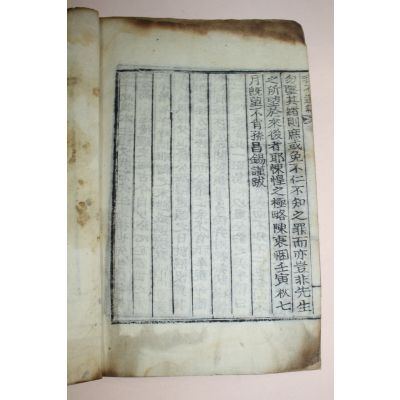 勿墜其緖則庶或免不仁不知之罪而亦豈非先生
之所望於來後者耶悚惶之極略陳衷悃壬寅秋七
月旣望不肖孫昌錫謹跋